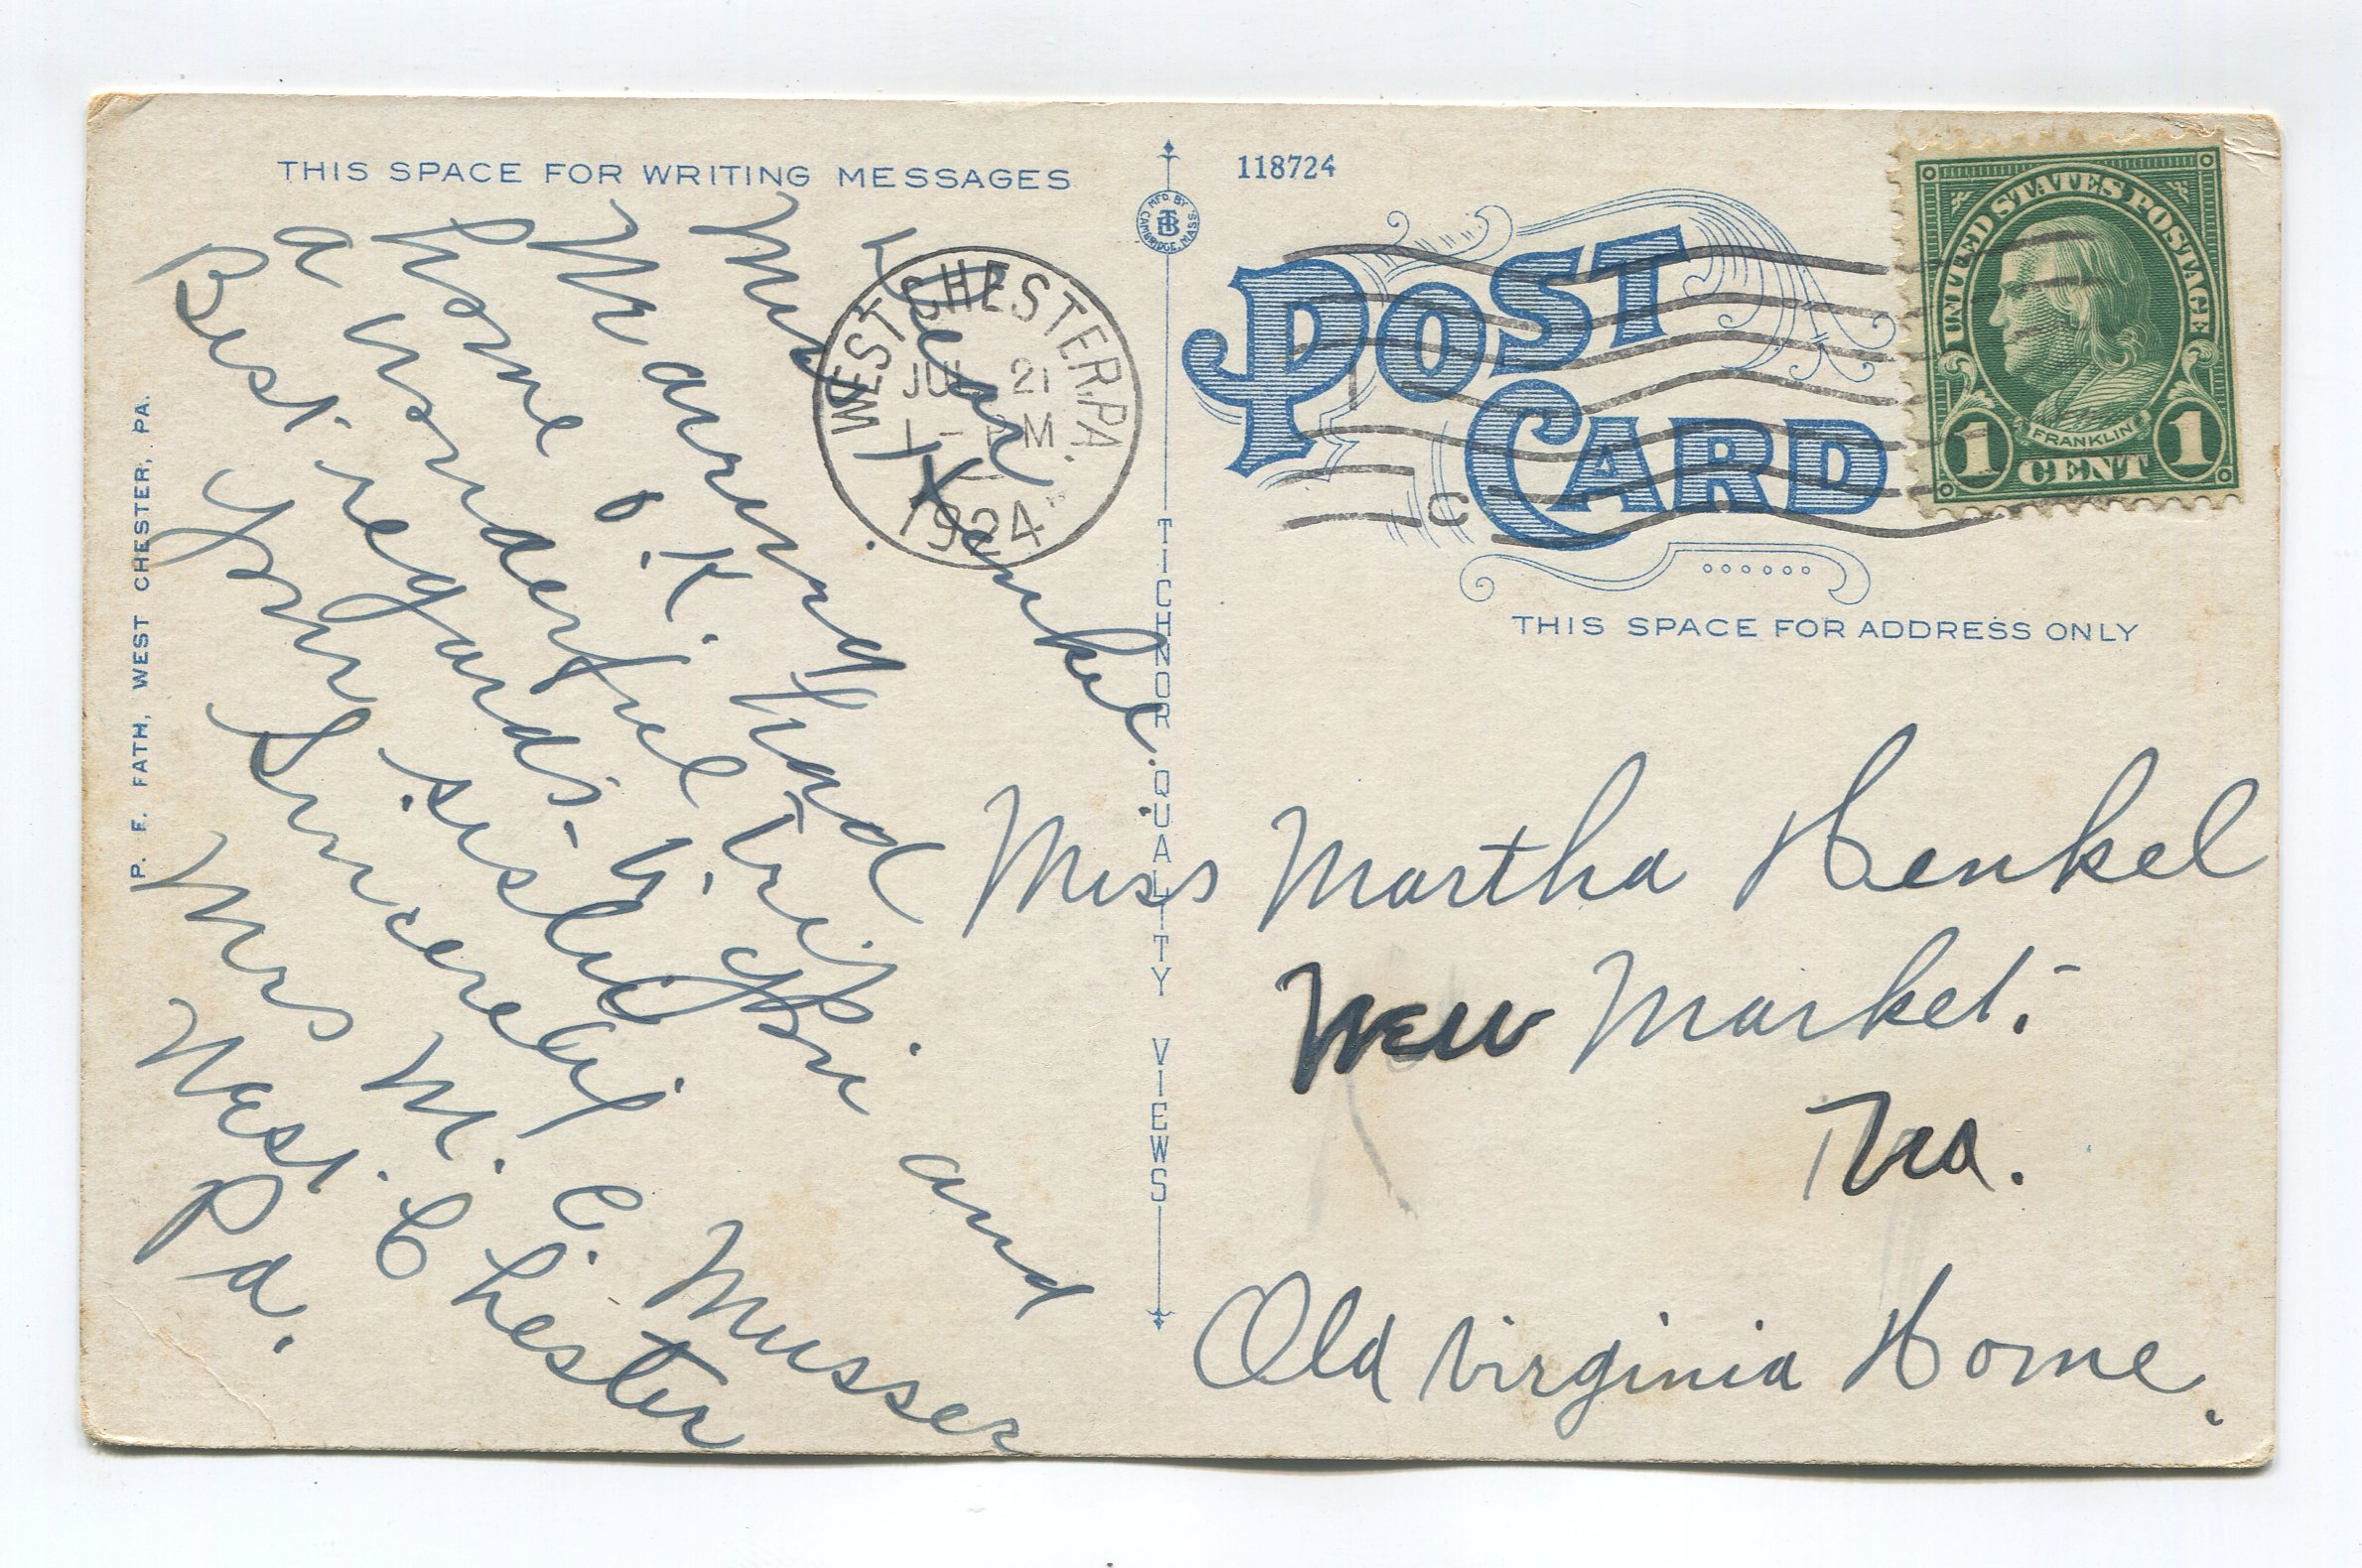 THIS SPACE FOR WRITING MESSAGES
Dear
Miss Henkel.
We arrived
home O.K. had
a wonderful trip.
Best regards to you and
Your sister
Sincerely
Mrs M. C. Musser
West Chester
Pa.
P. E. FATH, WEST CHESTER, PA.
WEST CHESTER, PA.
JUL 21
1924
MF'D BY
TB
CAMBRIDGE, MASS
TICHNOR QUALITY VIEWS
118724
POST CARD
C
UNITED STATES POSTAGE
FRANKLIN
1 CENT 1
THIS SPACE FOR ADDRESS ONLY
Miss Martha Henkel
New Market.
Va.
Old Virginia Home.